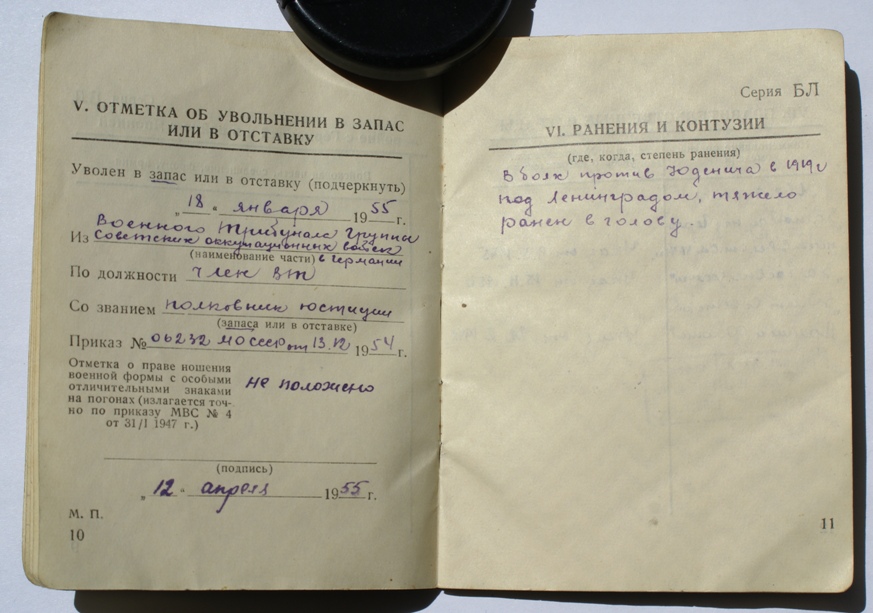 V. ОТМЕТКА ОБ УВОЛЬНЕНИИ В ЗАПАС
ИЛИ В ОТСТАВКУ
Уволен в запас или в отставку (подчеркнуть)
„18“ января 1955 г.
Военного Трибунала Группы
Из Советских оккупационных войск
(наименование части) в Германии
По должности член ВТ
Со званием полковник юстиции
(запаса или в отставке)
Приказ № 06232 МО СССР от 13.12 1954 г.
Отметка о праве ношения
военной формы с особыми
отличительными знаками
на погонах (излагается точ-
но по приказу МВС № 4
от 31/I 1947 г.)
не положено
(подпись)
„12“ апреля 1955 г.
М. П.
10
Серия БЛ
VI. РАНЕНИЯ И КОНТУЗИИ
(где, когда, степень ранения)
В боях против Юденича в 1919 г
под Ленинградом, тяжело
ранен в голову.
11